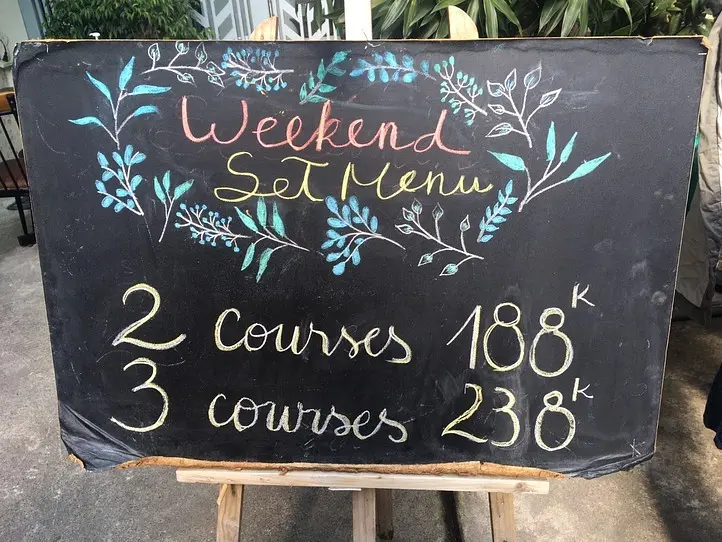 Weekend
Set Menu
2 courses 188K
3 courses 238K